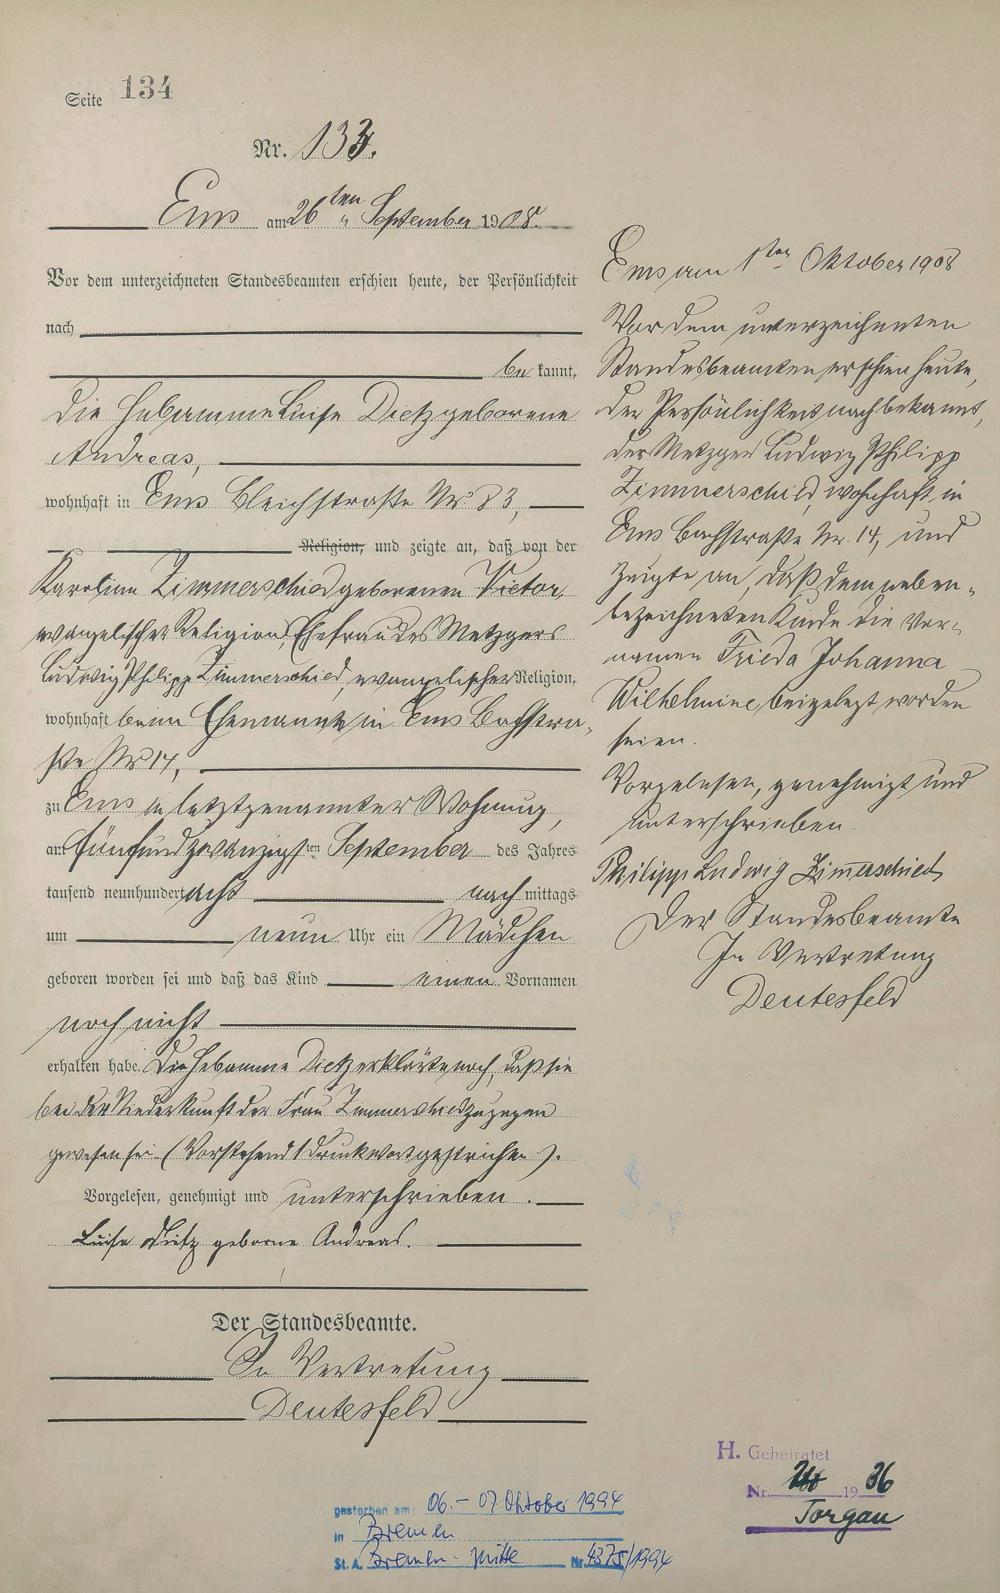 Seite 134
Nr. 133.
Ems am 26ten September 1908.
Vor dem unterzeichneten Standesbeamten erschien heute, der Persönlichkeit
nach
bekannt,
die Hebamme Luise Dietz geborene
Andreas,
wohnhaft in Ems Bleichstraße Nr. 23,
Religion, und zeigte an, daß von der
Karoline Zimmerschied geborenen Victor,
evangelischer Religion, Ehefrau des Metzgers
Ludwig Philipp Zimmerschied, evangelischer Religion,
wohnhaft beim Ehemanne in Ems Bachstra-
ße Nr 14,
zu Ems in letztgenannter Wohnung,
am fünfundzwanzigsten September des Jahres
tausend neunhundert acht nachmittags
um neun Uhr ein Mädchen
geboren worden sei und daß das Kind einen Vornamen
noch nicht
erhalten habe. Die Hebamme Dietz erklärte noch, daß sie
bei der Niederkunft der Frau Zimmerschied zugegen
gewesen sei. (Vorstehend 1 Druckwort gestrichen).
Vorgelesen, genehmigt und unterschrieben.
Luise Dietz geborne Andreas.
Der Standesbeamte.
In Vertretung
Deutesfeld
Ems am 1ten Oktober 1908
Vor dem unterzeichneten
Standesbeamten erschien heute,
der Persönlichkeit nach bekannt,
der Metzger Ludwig Philipp
Zimmerschied, wohnhaft in
Ems Bachstraße Nr. 14, und
zeigte an, daß dem neben-
bezeichneten Kinde die Vor-
namen Frieda Johanna
Wilhelmine beigelegt worden
seien.
Vorgelesen, genehmigt und
unterschrieben
Philipp Ludwig Zimerschied
Der Standesbeamte
In Vertretung
Deutesfeld
H. Geheiratet
Nr. 1936
Torgau
gestorben am: 06.-07. Oktober 1994
in Bremen
St.A. Bremen-Mitte Nr. 4375/1994